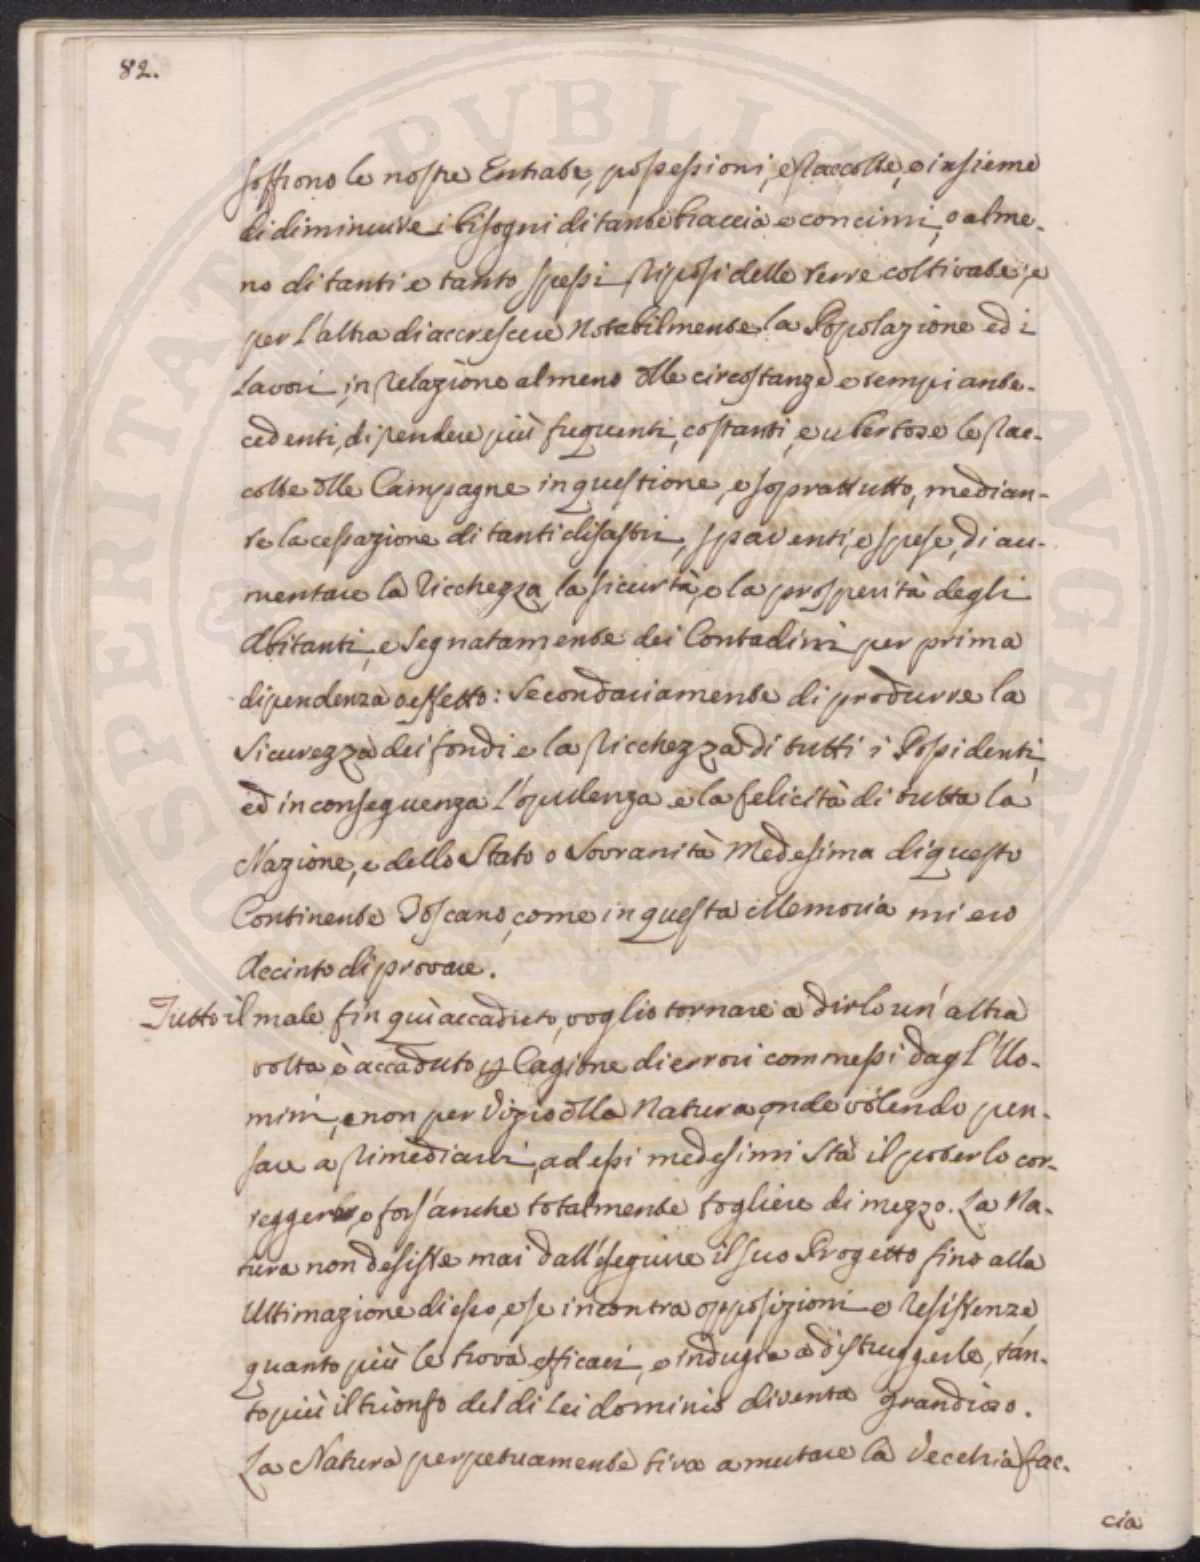 82.
soffrono le nostre Entrate, possessioni, e Raccolte, e insieme
di diminuire i bisogni di tante braccia e concimi, o alme-
no di tanti e tanto spessi Riposi delle terre coltivate; e
per l'altra di accrescere Notabilmente la Popolazione ed i
Lavori in Relazione almeno alle circostanze e tempi ante-
cedenti, di rendere più frequenti, costanti, e ubertose le Rac-
colte delle Campagne in questione, e soprattutto, median-
te la cessazione di tanti disastri, spaventi, e spese, di au-
mentare la Ricchezza, la sicurtà, e la prosperità degli
Abitanti, e segnatamente dei Contadini per prima
dipendenza o effetto: Secondariamente di produrre la
Sicurezza dei fondi e la Ricchezza di tutti i Possidenti,
ed in conseguenza l'opulenza e la felicità di tutta la
Nazione, e dello Stato o Sovranità Medesima di questo
Continente Toscano, come in questa Memoria mi ero
Accinto di provare.
Tutto il male fin quì accaduto, voglio tornare a dirlo un'altra
volta, è accaduto p Cagione di errori commessi dagl'Uo-
mini, e non per Vizio della Natura, onde volendo pen-
sare a Rimediarvi, ad essi medesimi Stà il poterlo cor-
reggere, e fors'anche totalmente togliere di mezzo. La Na-
tura non desiste mai dall'eseguire il suo Progetto fino alla
Ultimazione di esso, e se incontra opposizioni e Resistenze,
quanto più le trova efficaci, e indugia a distruggerle, tan-
to più il trionfo del di Lei dominio diventa grandioso.
La Natura perpetuamente tira a mutare la Vecchia fac-
cia
SPERITATI PUBLICAE AUGENDAE